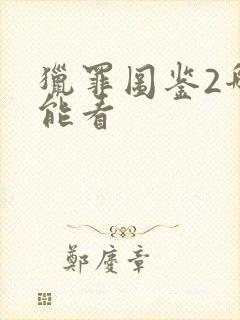 獵罪图鉴2
能看
鄭慶章